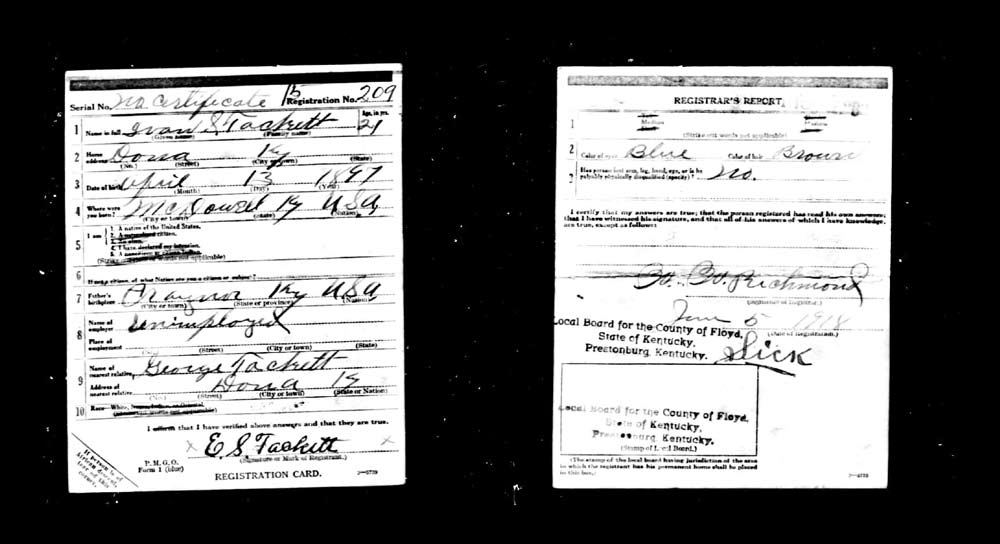 Serial No. No certificate B Registration No. 209
1 Name in full Ivan S. Tackett Age, in yrs. 21
(Given name) (Family name)
2 Home address Dona Ky
(No.) (Street) (City or town) (State)
3 Date of birth April 13 1897
(Month) (Day) (Year)
4 Where were you born? McDowel Ky USA
(City or town) (State) (Nation)
5 I am
1. A native of the United States.
2. A naturalized citizen.
3. An alien.
4. I have declared my intention.
5. A noncitizen or citizen Indian.
(Strike out lines or words not applicable)
6 If not a citizen, of what Nation are you a citizen or subject?
7 Father's birthplace Ky USA
(City or town) (State or province) (Nation)
8 Name of employer Unimployed
Place of employment
(No.) (Street) (City or town) (State)
9 Name of nearest relative George Tackett
Address of nearest relative Dona Ky
(No.) (Street) (City or town) (State or Nation)
10 Race—White,
I affirm that I have verified above answers and that they are true.
x E. S. Tackett x
(Signature or Mark of Registrant.)
P. M. G. O.
Form 1 (blue)
REGISTRATION CARD.
If person is of African descent, tear off this corner.
REGISTRAR'S REPORT
1 Medium
(Strike out words not applicable)
2 Color of eyes Blue Color of hair Brown
3 Has person lost arm, leg, hand, eye, or is he palpably physically disqualified (specify)? No.
I certify that my answers are true; that the person registered has read his own answers;
that I have witnessed his signature, and that all of his answers of which I have knowledge,
are true, except as follows:
Richmond
(Signature of Registrar.)
June 5 1918
(Date of Registration.)
Local Board for the County of Floyd,
State of Kentucky,
Prestonburg, Kentucky.
Sick
Local Board for the County of Floyd,
State of Kentucky,
Prestonburg, Kentucky.
(Stamp of Local Board.)
(The stamp of the local board having jurisdiction of the area
in which the registrant has his permanent home shall be placed
in this box.)